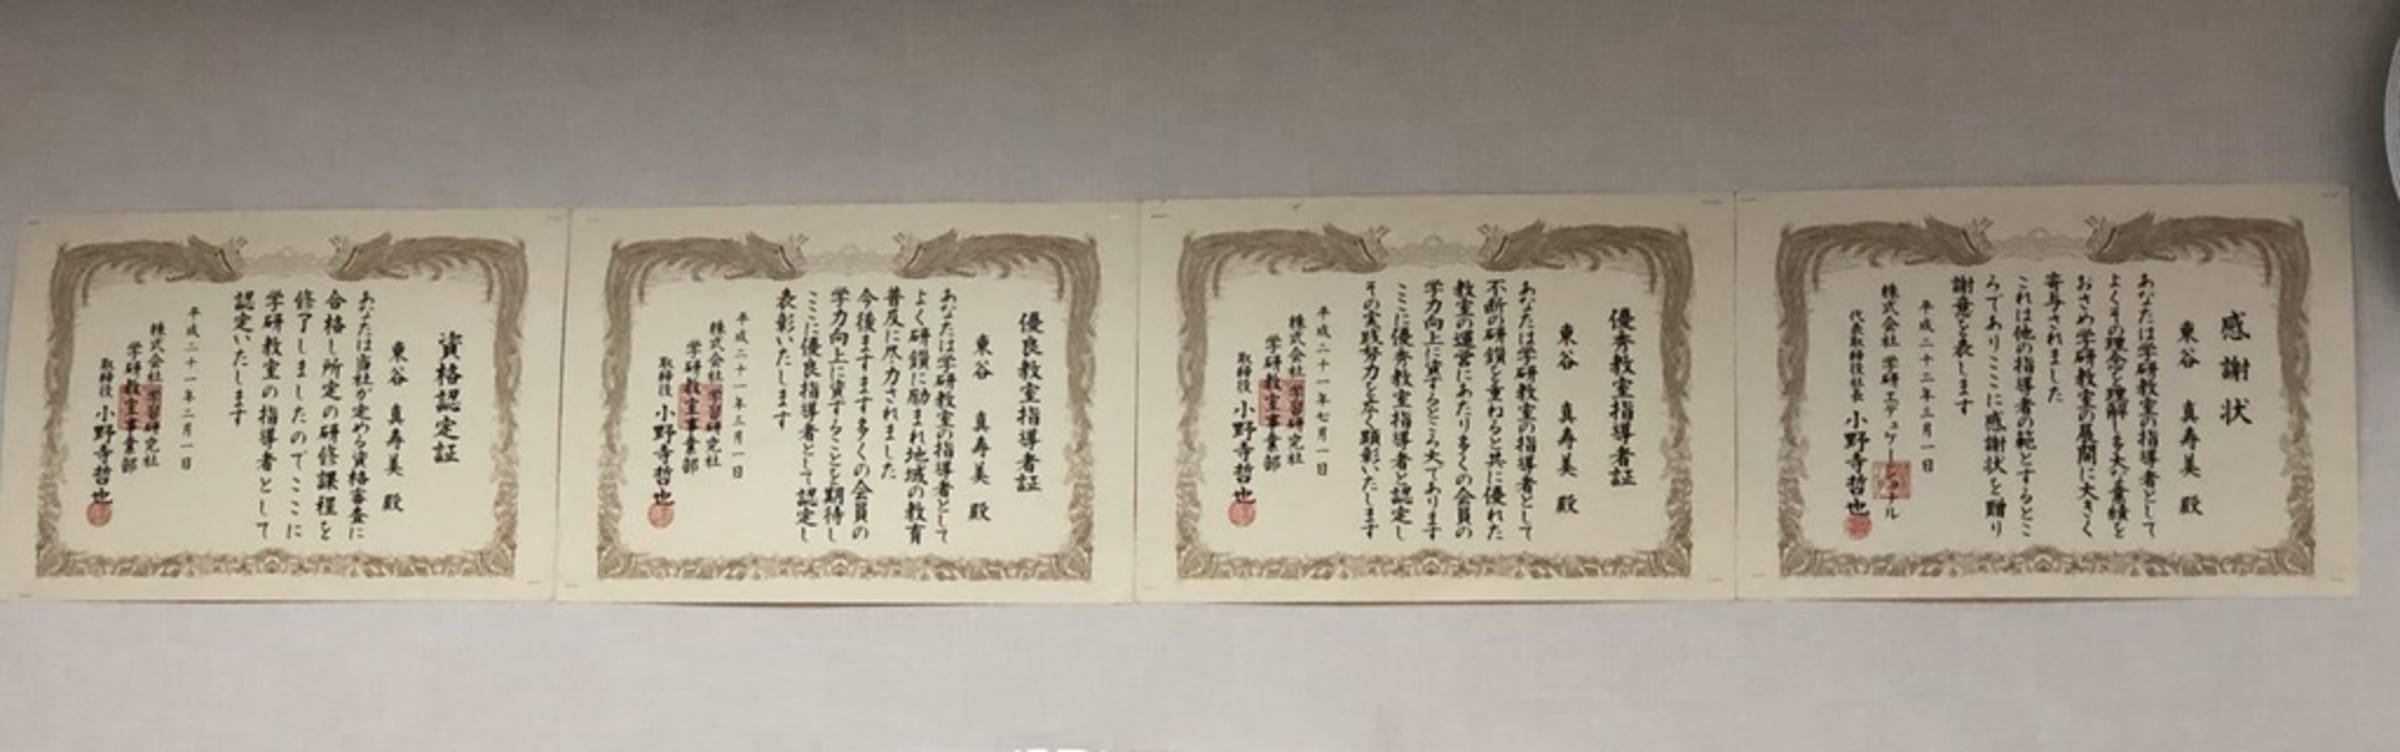 資格認定証
東谷 真寿美 殿
あなたは当社が定める資格審査に
合格し所定の研修課程を
修了しましたのでここに
学研教室の指導者として
認定いたします
平成二十一年二月一日
株式会社 学習研究社
学研教室事業部
取締役 小野寺哲也
優良教室指導者証
東谷 真寿美 殿
あなたは学研教室の指導者として
よく研鑚に励まれ地域の教育
普及に尽力されました
今後ますます多くの会員の
学力向上に資することを期待し
ここに優良指導者として認定し
表彰いたします
平成二十一年三月一日
株式会社 学習研究社
学研教室事業部
取締役 小野寺哲也
優秀教室指導者証
東谷 真寿美 殿
あなたは学研教室の指導者として
不断の研鑚を重ねると共に優れた
教室の運営にあたり多くの会員の
学力向上に資するところ大であります
ここに優秀教室指導者と認定し
その実践努力を広く顕彰いたします
平成二十一年七月一日
株式会社 学習研究社
学研教室事業部
取締役 小野寺哲也
感謝状
東谷 真寿美 殿
あなたは学研教室の指導者として
よくその理念を理解し多大な業績を
おさめ学研教室の展開に大きく
寄与されました
これは他の指導者の範とするとこ
ろでありここに感謝状を贈り
謝意を表します
平成二十二年三月一日
株式会社 学研エデュケーショナル
代表取締役社長 小野寺哲也